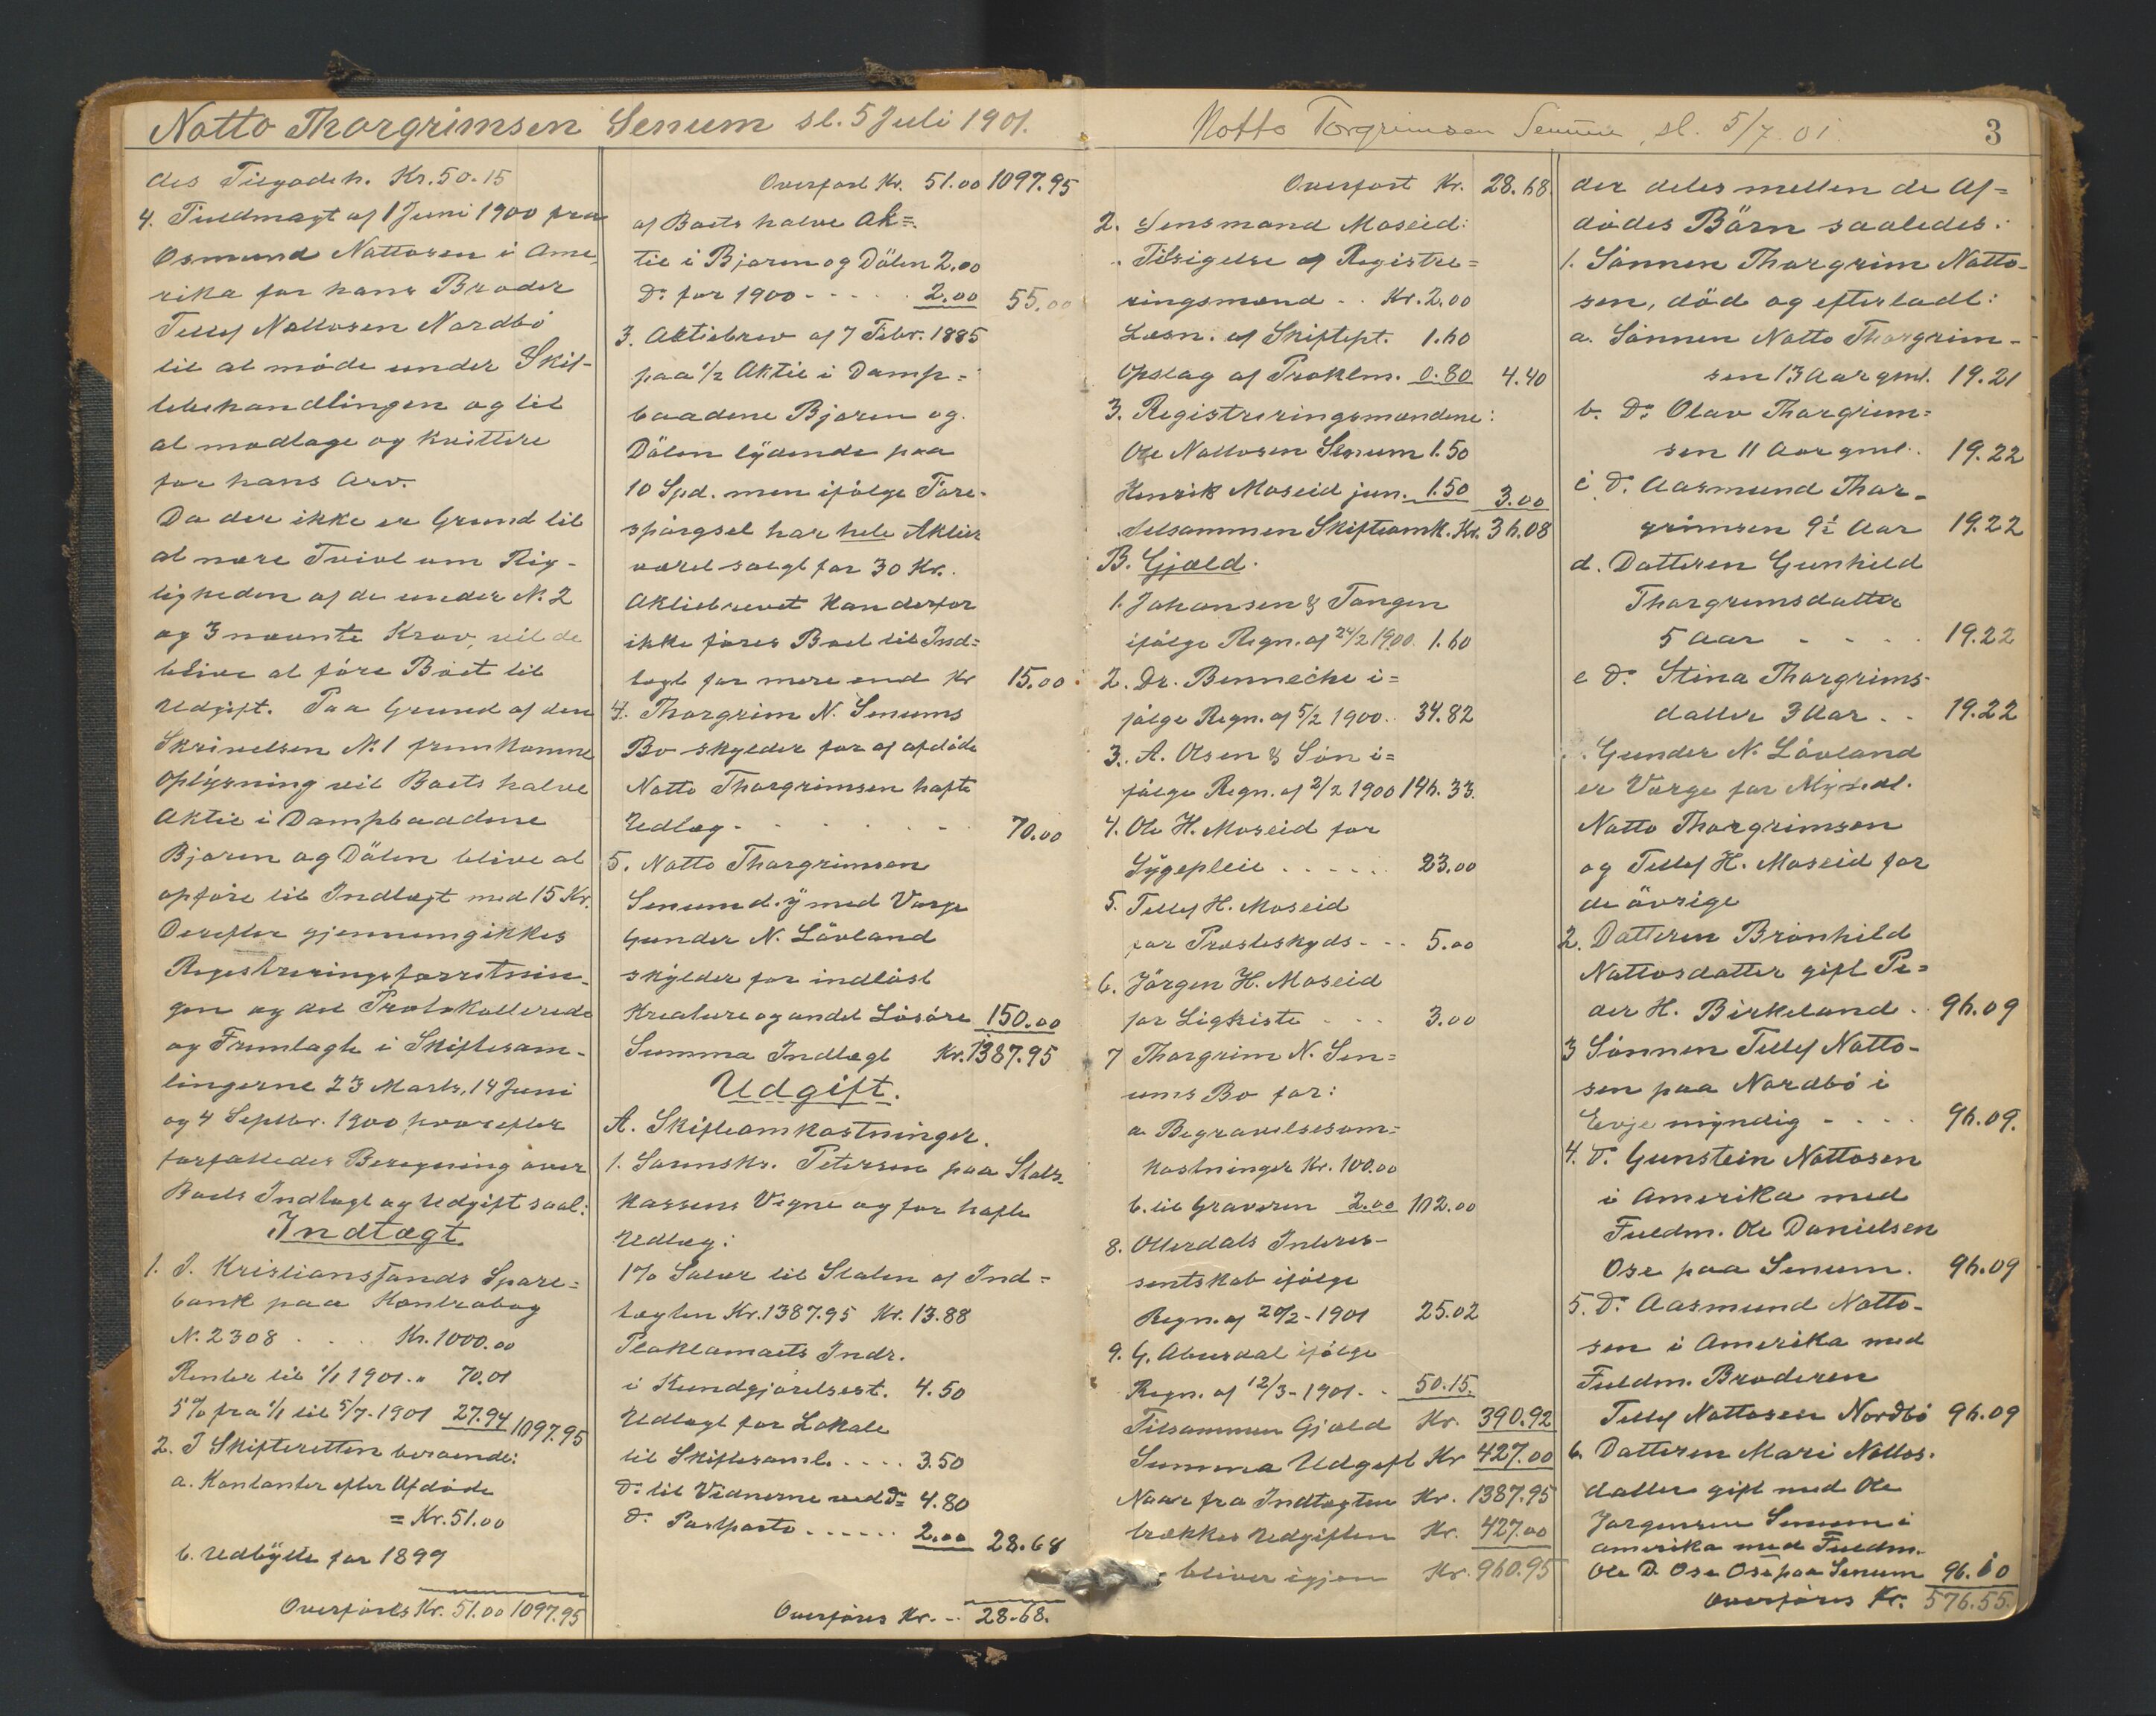 Notto Thorgrimsen Senum sl. 5 Juli 1901.
des Tilgodeh. Kr. 50.15
4. Fuldmagt af 1 Juni 1900 fra
Osmund Nottosen i Ame-
rika for hans Broder
Tellef Nottosen Nordbö
til at möde under Skif-
tebehandlingen og til
at modtage og kvittere
for hans Arv.
Da der ikke er Grund til
at nære Tvivl om Rig-
tigheden af de under N. 2
og 3 nævnte Krav, vil de
blive at före Boet til
Udgift. Paa Grund af den
Skrivelsen N. 1 fremkomne
Oplysning vil Boets halve
Aktie i Dampbaadene
Bjoren og Dölen blive at
opföre til Indtægt med 15 Kr.
Derefter gjennemgikkes
Registreringsforretnin-
gen og det Protokollerede
og Fremlagte i Skiftesam-
lingerne 23 Marts, 14 Juni
og 4 Septbr. 1900 hvorefter
forfattedes Beregning over
Boets Indtægt og Udgift saal:
Indtægt
1. I Kristianssands Spare=
bank paa Kontrabog
N. 2308 . . . Kr. 1000.00
Renter til 1/1 1901. " 70.01
5% fra 1/1 til 5/7-1901 27.94 1097.95
2. I Skifteretten beroende:
a. Kontanter efter Afdöde
= Kr. 51.00
b. Udbytte for 1899
Overföres Kr. 51.00 1097.95
Overfört Kr. 51.00 1097.95
af Boets halve Ak=
tie i Bjoren og Dölen 2.00
Do for 1900 - - - - - 2.00 55.00
3. Aktiebrev af 7 Febr. 1885
paa 1/2 Aktie i Damp=
baadene Bjoren og
Dölen lydende paa
10 Spd. men ifölge Fore-
spörgsel har hele Aktier
været solgt for 30 Kr.
Aktiebrevet kan derfor
ikke föres Boet til Ind=
tægt for mere end Kr 15.00
4. Thorgrim N. Senums
Bo skylder for af afdöde
Notto Thorgrimsen hafte
Udlæg - . . . . - 70.00
5. Notto Thorgrimsen
Senum d. y med Værge
Gunder N. Lövland
skylder for indlöst
Kreature og andet Lösöre 150.00
Summa Indtægt Kr. 1387.95
Udgift.
A. Skifteomkostninger.
1. Sorenskr. Petersen paa Stats-
kassens Vegne og for hafte
Udlæg:
1% Salær til Staten af Ind=
tægten Kr. 1387.95 Kr. 13.88
Proklamaets Indr.
i Kundgjörelsest. 4.50
Udlagt for Lokale
til Skiftesaml. . . . . 3.50
Do til Vidnerne ved Do 4.80
Do Postporto . . . . . . 2.00 28.68
Overföres Kr. .. 28.68.
Notto Torgrimsen Senum, sl. 5/7.01.
3
Overfört Kr. 28.68
2. Lensmand Moseid:
Tilsigelse af Registre=
ringsmænd . . Kr. 2.00
Læsn. af Skiftept. 1.60
Opslag af Proklm. 0.80 4.40
3. Registreringsmændene:
Ole Nottosen Senum 1.50
Henrik Moseid jun. 1.50 3.00
tilsammen Skifteomk. Kr. 36.08
B. Gjæld.
1. Johansen & Tangen
ifölge Regn. af 24/2 1900. 1.60
2. Dr. Bennecke i=
fölge Regn. af 5/2 1900. 34.82
3. A. Olsen & Sön i=
fölge Regn. af 2/2 1900 146.33.
4. Ole H. Moseid for
Sygepleie . . . . . . 23.00
5. Tellef H. Moseid
for Prosteskyds - - - 5.00
6. Jörgen H. Moseid
for Ligkiste - - - 3.00
7 Thorgrim N. Sen=
ums Bo for:
a. Begravelsesom=
kostninger Kr. 100.00
b. til Graveren 2.00 102.00
8. Otterdals Interes-
sentskab ifölge
Regn. af 20/2-1901 25.02
9. G. Abusdal ifölge
Regn. af 12/3-1901 - - 50.15.
Tilsammen Gjæld Kr. 390.92
Summa Udgift Kr 427.00
Naar fra Indtægten Kr. 1387.95
trækkes Udgiften Kr. 427.00
bliver igjen Kr. 960.95
der deles mellem de Af=
dödes Börn saaledes:
1. Sönnen Thorgrim Notto-
sen, död og efterladt:
a. Sönnen Notto Thorgrim-
sen 13 Aar gml. 19.21
b. Do Olav Thorgrim=
sen 11 Aar gml. 19.22
c Do Aasmund Thor-
grimsen 9½ Aar 19.22
d. Datteren Gunhild
Thorgrimsdatter
5 Aar - - - - 19.22
e Do Stina Thorgrims-
datter 3 Aar . . 19.22
Gunder N. Lövland
er Værge for Myndl.
Notto Thorgrimsen
og Tellef H. Moseid for
de övrige
2. Datteren Brönhild
Nottosdatter gift Pe=
der H. Birkeland . . 96.09
3 Sönnen Tellef Notto-
sen paa Nordbö i
Evje myndig - . . . 96.09.
4. Do Gunstein Nottosen
i Amerika med
Fuldm. Ole Danielsen
Ose paa Senum. 96.09
5. Do Aasmund Notto-
sen i Amerika med
Fuldm. Broderen
Tellef Nottosen Nordbö 96.09
6. Datteren Mari Nottos-
datter gift med Ole
Jørgensen Senum i
Amerika med Fuldm.
Ole D. Ose Ose paa Senum 96.10
Overföres Kr. 576.55.